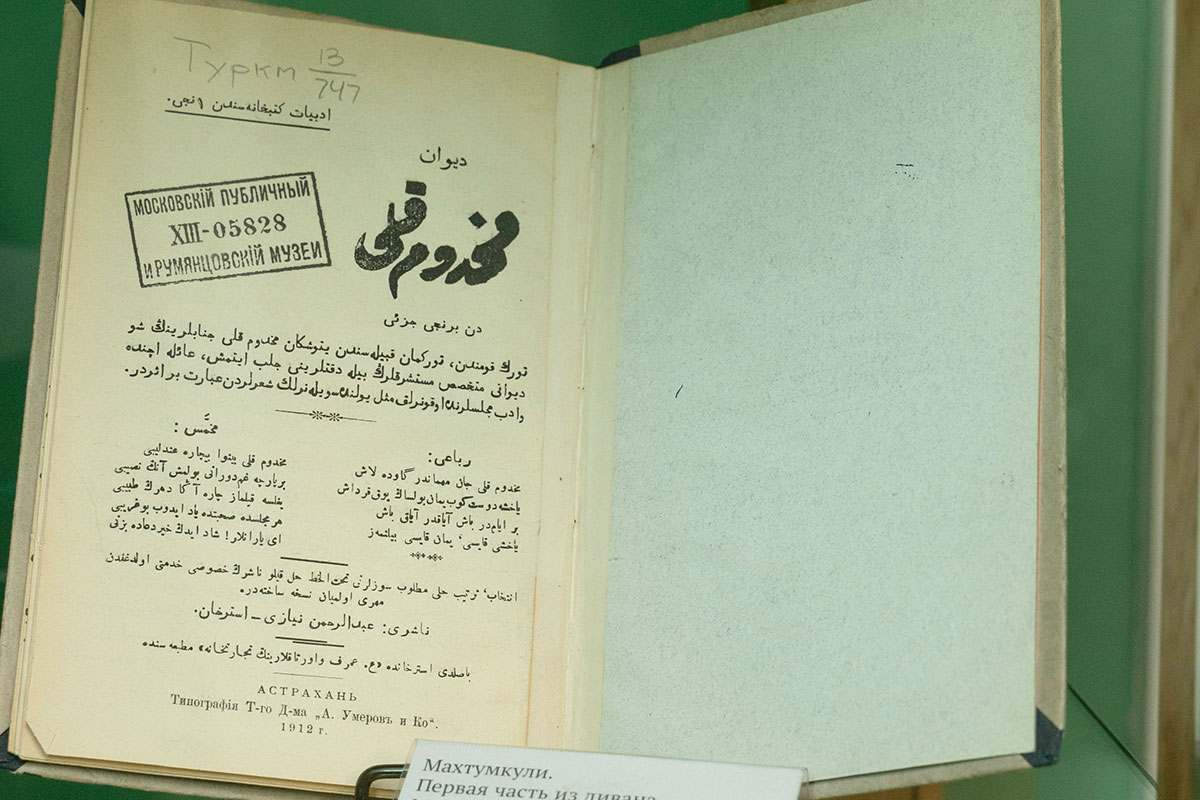 Туркм 13/747
ادبیات کتبخانه‌سندن ۱نجی.
دیوان
مخدوم قلی
МОСКОВСКІЙ ПУБЛИЧНЫЙ
XIII-05828
и РУМЯНЦОВСКІЙ МУЗЕИ
دن برنجی جزئی
تورك قومندن، تورکمان قبیله سندن یتوشکان مخدوم قلی جنابلرینڭ شو
دیوانی متخصص مستشرقلرڭ بیله دقتلرینی جلب ایتمش، عائله اچنده
وادب مجلسلرنده اوقونرلق مثل یولنده سویله‌نرلك شعرلردن عبارت بر اثردر.
رباعی:
مخدوم قلی جان مهماندر گاوده لاش
یاخشه دوست کوب یمان بولساڭ یوق قرداش
بر ایام در باش آیاقدر آیاق باش
یاخشی قایسی، یمان قایسی بیلنمەز
مخمّس:
مخدوم قلی بینوا بیچاره عندلیبی
بر پارچه غم دورانی بولمش آنڭ نصیبی
یغلسه قیلماز چاره آڭا دهرڭ طبیبی
هر مجلسده صحبتده یاد ایدوب بو غریبی
ای یارانلار! شاد ایدڭ خیر دعاده بزنی
انتخاب، ترتیب حلی مطلوب سوزلرنی تحت الخط حل قیلو ناشرڭ خصوصی خدمتی اولدغندن
مهری اولمیان نسخه ساخته‌در.
ناشری: عبدالرحمن نیازی ــ استرخان.
باصلدی استرخانده «ع. عمرف و اورتاقلارینڭ تجارتخانه» مطبعه سنده
АСТРАХАНЬ
Типографія Т-го Д-ма „А. Умеровъ и Ко“.
1912 г.
Махтумкули.
Первая часть из дивана